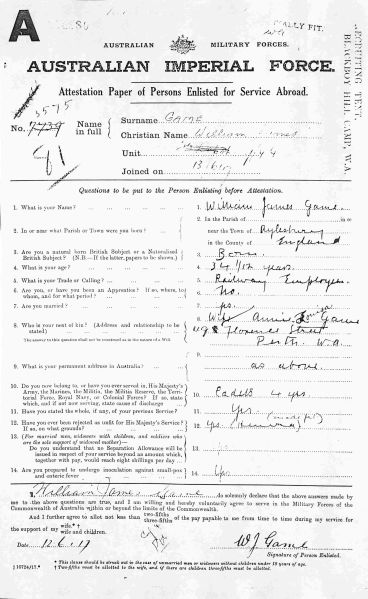 A
ALLY FIT.
RECRUITING TENT,
BLACKBOY HILL CAMP, W.A.
AUSTRALIAN MILITARY FORCES.
AUSTRALIAN IMPERIAL FORCE.
Attestation Paper of Persons Enlisted for Service Abroad.
No. 7739
3595
Name in full
Surname GAME
Christian Name William James
Unit
Joined on
Questions to be put to the Person Enlisting before Attestation.
1. What is your Name? 1. William James Game
2. In or near what Parish or Town were you born? 2. In the Parish of in or
near the Town of Aylesbury
in the County of England
3. Are you a natural born British Subject or a Naturalised
British Subject? (N.B.—If the latter, papers to be shown.) 3. Born
4. What is your age? 4. 34 years
5. What is your Trade or Calling? 5. Railway Employee
6. Are you, or have you been an Apprentice? If so, where, to
whom, and for what period? 6. No.
7. Are you married? 7. yes.
8. Who is your next of kin? (Address and relationship to be
stated) 8. Wife Annie Game
Florence Street
Perth W.A.
9. What is your permanent address in Australia? 9. as above.
10. Do you now belong to, or have you ever served in, His Majesty's
Army, the Marines, the Militia, the Militia Reserve, the Terri-
torial Force, Royal Navy, or Colonial Forces? If so, state
which, and if not now serving, state cause of discharge 10. Cadets 4 yrs
11. Have you stated the whole, if any, of your previous Service? 11. Yes
12. Have you ever been rejected as unfit for His Majesty's Service?
If so, on what grounds? 12. Yes
13. (For married men, widowers with children, and soldiers who
are the sole support of widowed mother)—
Do you understand that no Separation Allowance will be
issued in respect of your service beyond an amount which,
together with pay, would reach eight shillings per day 13.
14. Are you prepared to undergo inoculation against small-pox
and enteric fever 14. Yes
I, William James Game do solemnly declare that the above answers made
by me to the above questions are true, and I am willing and hereby voluntarily agree to serve in the Military Forces of the
Commonwealth of Australia within or beyond the limits of the Commonwealth.
And I further agree to allot not less than two-fifths three-fifths of the pay payable to me from time to time during my service for
the support of my wife.* wife and children.
Date 12.6.17
W J Game
Signature of Person Enlisted.
* This clause should be struck out in the case of unmarried men or widowers without children under 18 years of age.
† Two-fifths must be allotted to the wife, and if there are children three-fifths must be allotted.